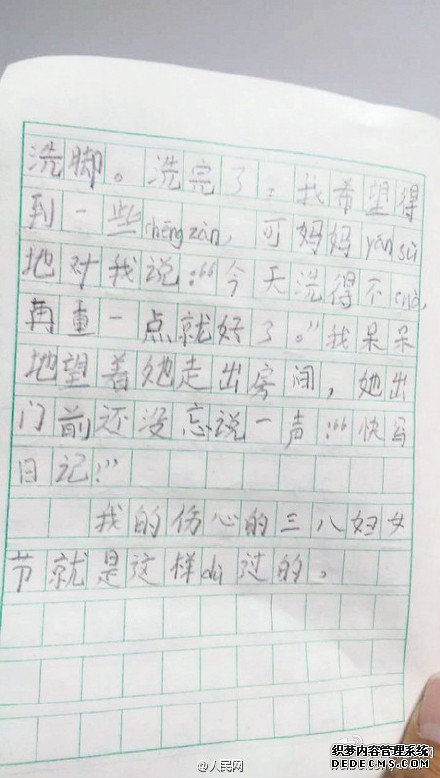 洗脚。洗完了，我希望得
到一些chēngzàn，可妈妈yánsù
地对我说：“今天洗得不cuò，
再重一点就好了。”我呆呆
地望着她走出房间，她出
门前还没忘说一声：“快写
日记！”
我的伤心的三八妇女
节就是这样dù过的。
@人民网
织梦内容管理系统
DEDECMS.COM